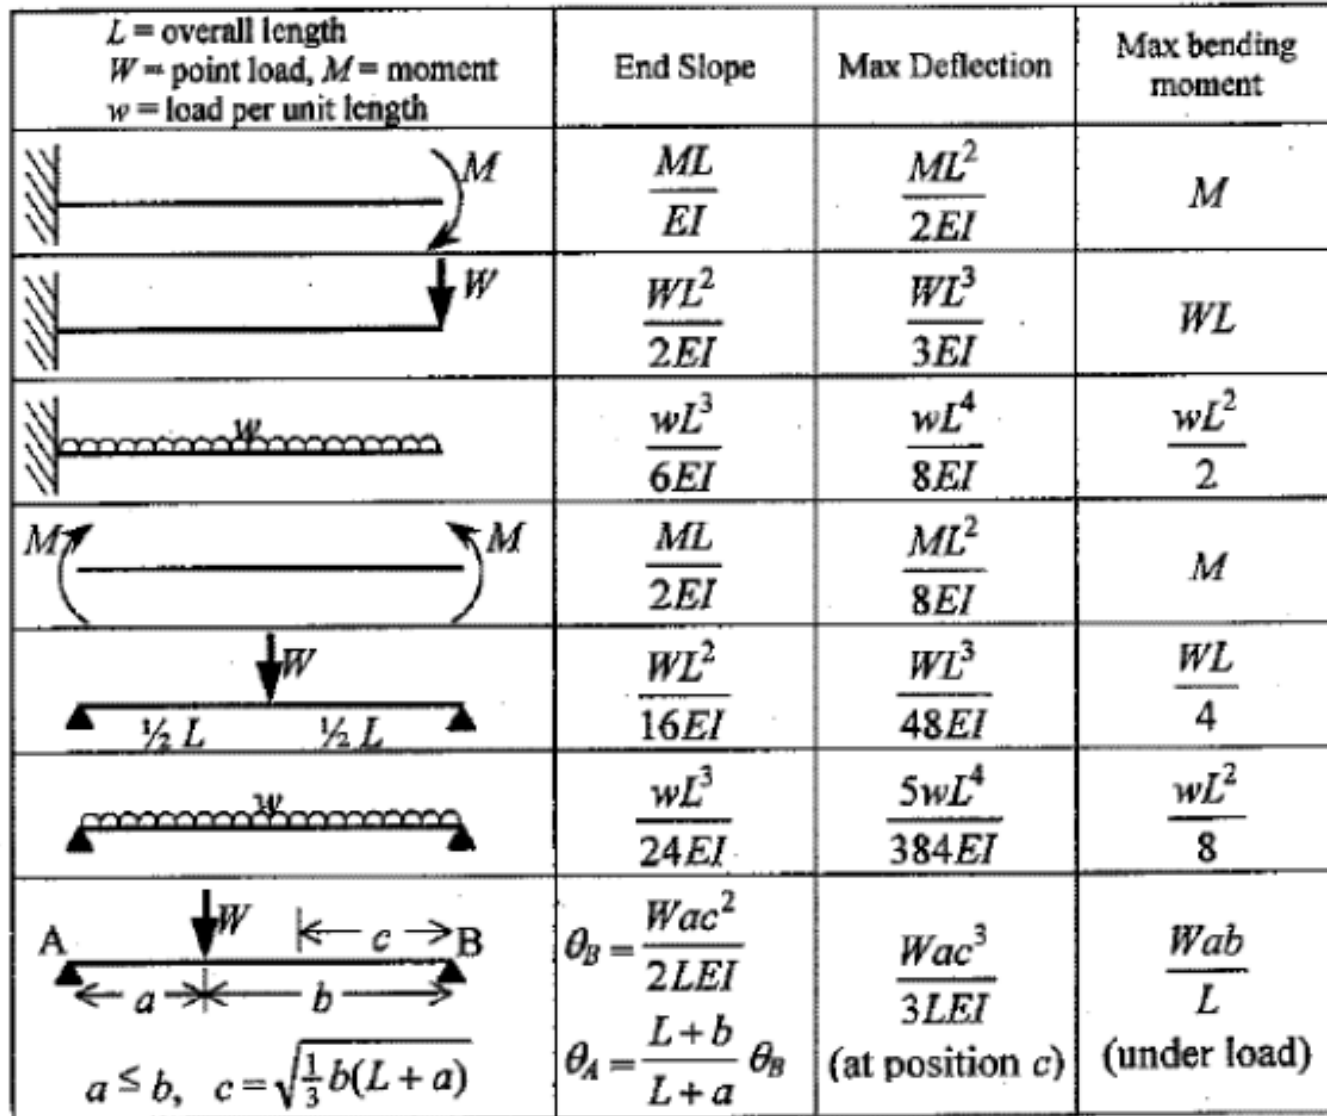 L = overall length
W = point load, M = moment
w = load per unit length
End Slope
Max Deflection
Max bending
moment
M
ML/EI
ML²/2EI
M
W
WL²/2EI
WL³/3EI
WL
w
wL³/6EI
wL⁴/8EI
wL²/2
M M
ML/2EI
ML²/8EI
M
W
½ L ½ L
WL²/16EI
WL³/48EI
WL/4
w
wL³/24EI
5wL⁴/384EI
wL²/8
W
A c B
a b
a ≤ b, c = √(⅓b(L + a))
θ_B = Wac²/2LEI
θ_A = (L + b)/(L + a) θ_B
Wac³/3LEI
(at position c)
Wab/L
(under load)